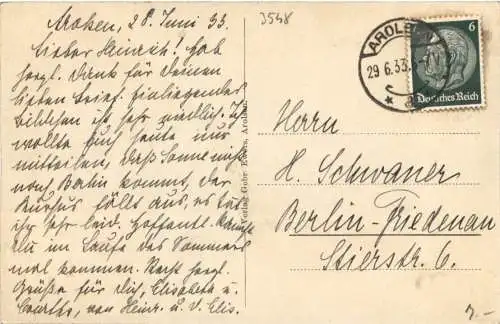 Arolsen, 28. Juni 33.
Lieber Heinrich! Hab
herzl. Dank für Deinen
lieben Brief. Einliegendes
Bildchen ist sehr niedlich. Ich
wollte Euch heute nur
mitteilen, daß Sonne nicht
nach Berlin kommt, der
Kursus fällt aus, es tut
ihr sehr leid. Hoffentl. kannst
du im Laufe des Sommers
mal kommen. Recht herzl.
Grüße für Dich, Elisabeth u.
von Heinr. u. v. Elis.
3548
Verlag Gebr. Ewers, Arolsen
AROLSEN
29.6.33
6
Deutsches Reich
Herrn
H. Schwaner
Berlin-Friedenau
Stierstr. 6.